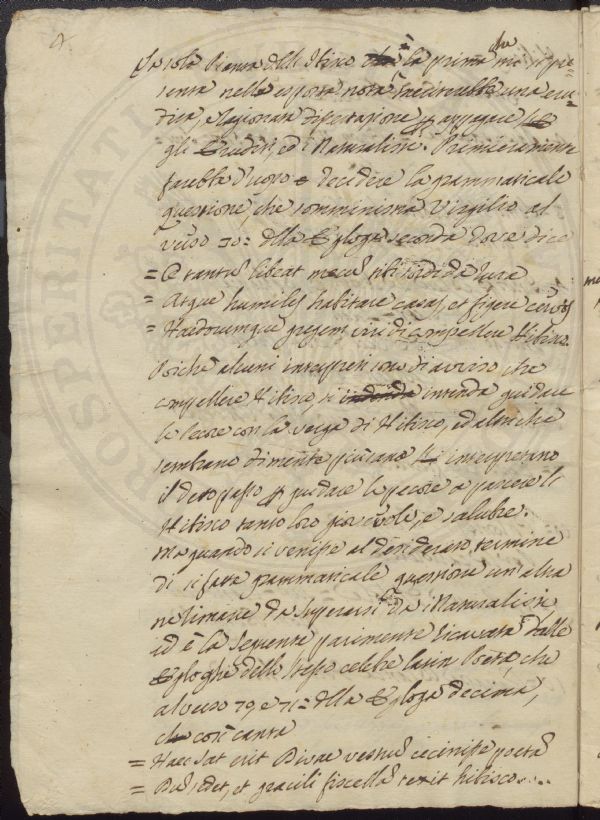 La sola Pianta dell'Ibisco è la prima che mi si pre=
senta nella esposta nota, facciarebbe una eru=
dita, e ragionata dissertazione p appagare
gli Eruditi, ed i Naturalisti. Primieramente
sarebbe d'uopo decidere la grammaticale
questione, che somministra Virgilio al
verso 30= della Egloga seconda dove dice
= O tantu libeat mecu tibi sordida rura
= Atque humiles habitare casas, et figere cervos
= Haedorumque gregem viridi compellere Hibisco.
Poichè alcuni interpreti sono di avviso che
compellere Hibisco, si intenda guidare
le Pecore con la verga di Hibisco, ed altri che
sembrano di mente più sana interpretano
il detto passo p guidare le pecore a pascere l'
Hibisco tanto loro giovevole, e salubre.
Ma quando si venisse al desiderato termine
di sì fatta grammaticale questione un'altra
ne rimane da superarsi da i Naturalisti,
ed è la seguente parimente ricavata dalle
Egloghe dello stesso celebre latin Poeta, che
al verso 70, e 71= della Egloga decima,
così canta
= Haec sat erit Divae vestru cecinisse poeta
= Du sedet, et gracili fiscella texit hibisco....